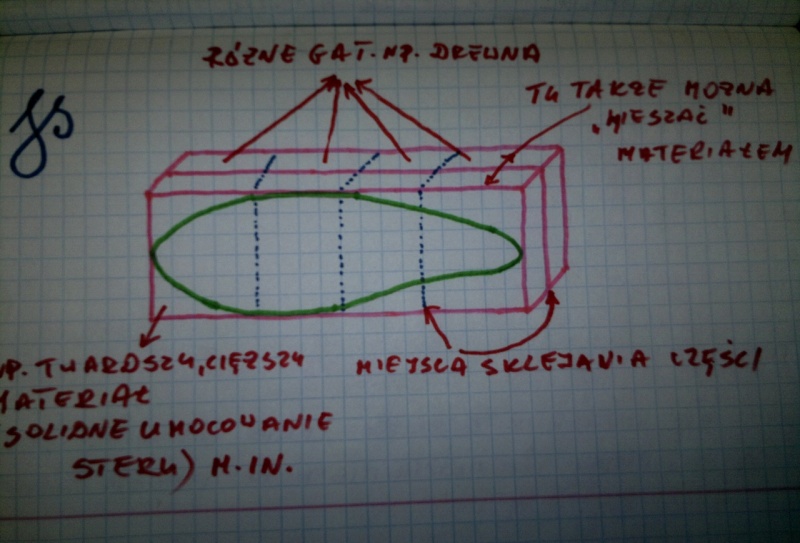 RÓŻNE GAT. NP. DREWNA
TU TAKŻE MOŻNA
„MIESZAĆ"
MATERIAŁEM
JS
NP. TWARDSZY, CIĘŻSZY
MATERIAŁ
SOLIDNE UMOCOWANIE
STERU) M.IN.
MIEJSCA SKLEJANIA CZĘŚCI